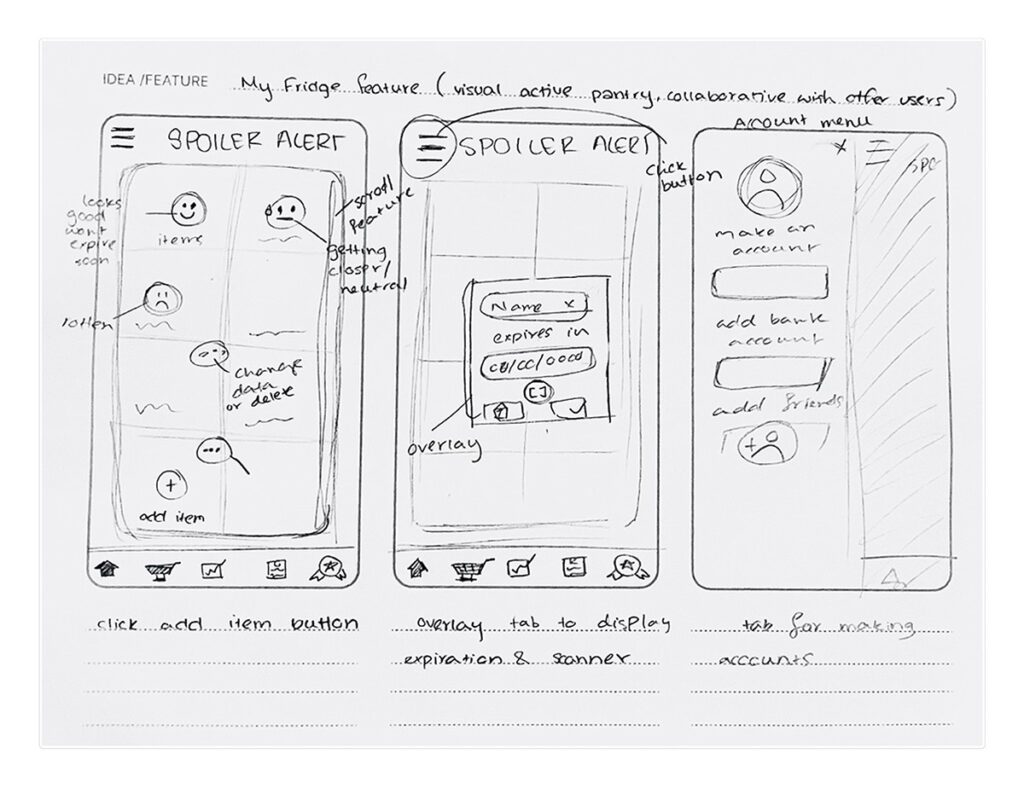 IDEA /FEATURE My Fridge feature (visual active pantry, collaborative with offer users)
SPOILER ALERT
looks
good
wont
expire
soon
items
scroll
feature
getting
closer/
neutral
rotten
change
data
or delete
+
add item
click add item button
SPOILER ALERT
click
button
Name x
expires in
00/00/0000
overlay
overlay tab to display
expiration & scanner
Account menu
x
SPO
make an
account
add bank
account
add friends
+
tab for making
accounts